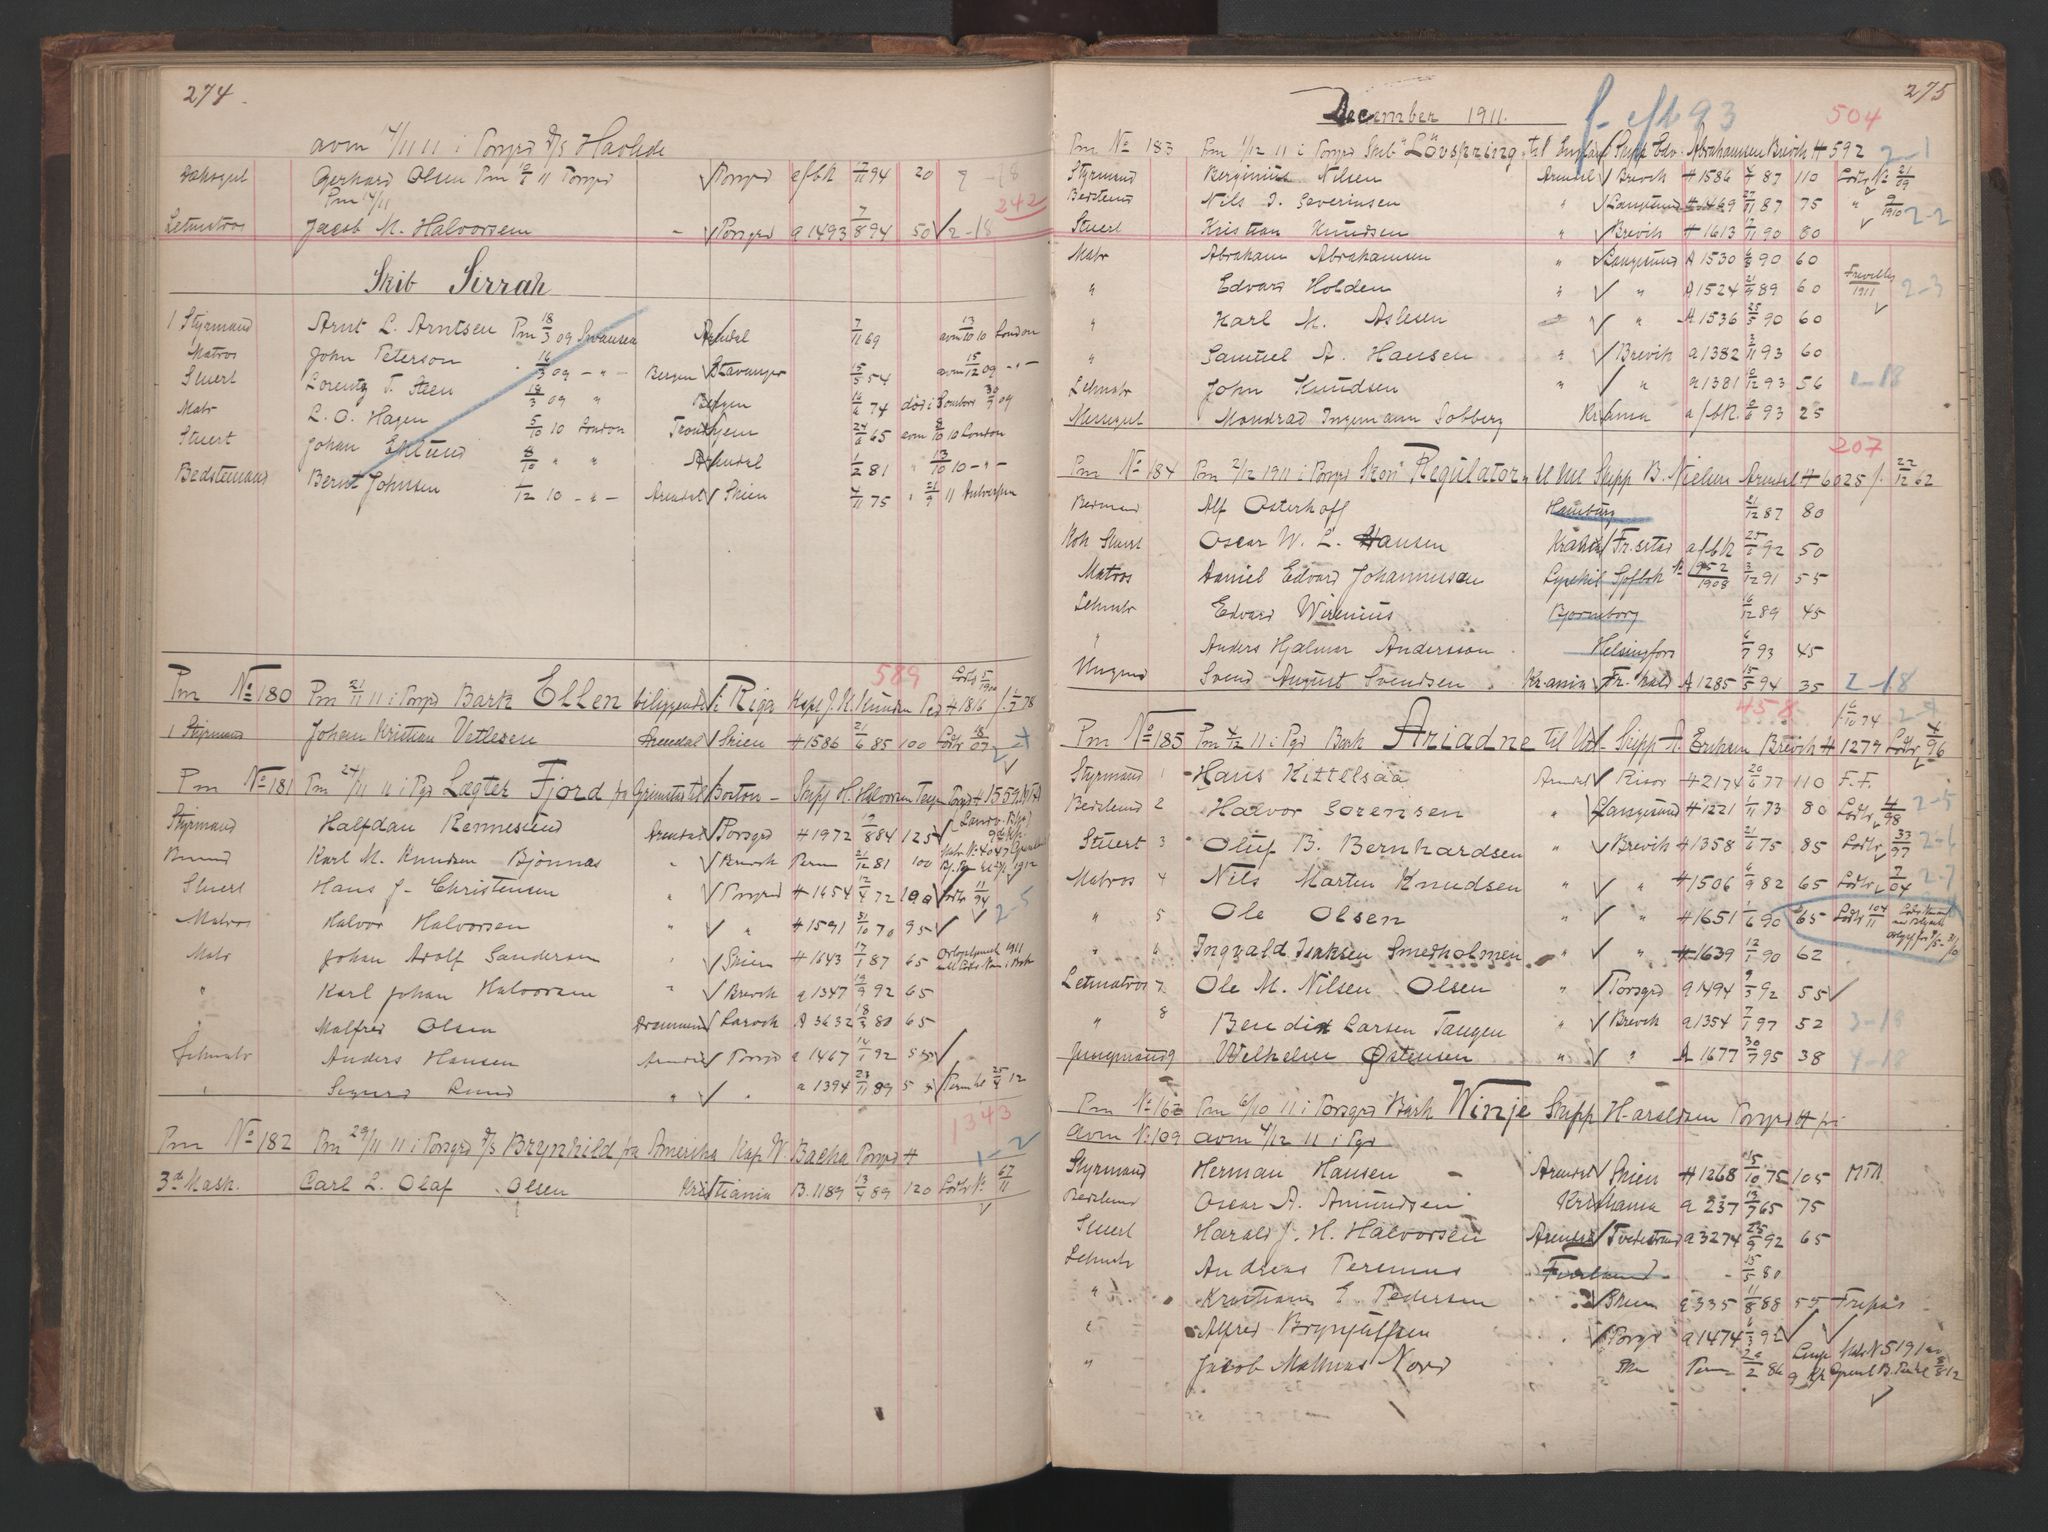 274.
avm 4/11 11 i Porsgrd D/S
Dæksgut Gerhard Olsen Pm 11 Porsgrd Porsgrd efbk 17/11 94 20
Pm 14/11 242
Letmatros Jacob M. Halvorsen - Porsgrd a 1493 7/8 94 50 2-18
Skib Sirrah
1 Styrmand Arnt L. Arntsen Pm 18/3 09 Swansea Arendal 7/11 69 avm 13/10 10 London
Matros John Peterson 16/3 09 - " - Bergen Stavanger 15/5 54 avm 15/12 09 - " -
Stuert Lorentz T. Steen 18/3 09 " Bergen 74 død i London 30/9 09
Matr L. O. Hagen 5/10 10 London Trondhjem 24/6 65 avm 8/10 10 London
Stuert Johan Eklund 8/10 " " Arendal 1/2 81 " 13/10 10 - " -
Bedstemand Bernt Johnsen 1/12 10 - " - Arendal Skien 4/11 75 " 21/9 11 Antwerpen
589
Pm No 180 Pm 21/11 11 i Porsgrd Bark Ellen liggende i Riga Kapt J. K. Knudsen H 1816
1 Styrmand Johan Kristian Vetlesen Arendal Skien H 1586 21/6 85 100 Lodtr 48/07
Pm No 181 Pm 24/11 11 i Pgd Lægter Fjord fra Grimstad til Boston - Skipp H. Halvorsen Porsgrd H 1559
Styrmand Halfdan Rennesund Arendal Porsgrd H 1972 19/8 84 125
Karl M. Knudsen Bjønnæs " Brevik Perm 21/12 81 100
Stuert Hans J. Christensen " Porsgrd H 1654 12/4 72 100 Lodtr 11/94 2-5
Matros Halvor Halvorsen " " H 1591 31/10 70 95
Matr Johan Adolf Sandersen " Skien H 1643 17/1 87 65
" Karl Johan Halvorsen " Brevik a 1347 19/9 92 65
" Malfred Olsen Drammen Larvik A 3632 18/3 80 65
Letmatr Anders Hansen Arendal Porsgrd a 1467 14/1 92 55
" Sigurd Lund " " a 1394 23/11 89 Permbl 25/4 12
1343
Pm No 182 Pm 29/11 11 i Porsgrd D/S Brynhild fra Amerika Kap W. Bacha Porsgrd H 1-2
3die Mask. Carl L. Olaf Olsen Kristiania B. 1189 13/4 89 120 Lodtr No 67/11
275
December 1911. 504
Pm No 183 Pm 1/12 11 i Porsgrd Skib "Lövspring" til England Skipp Edv. Abrahamsen Brevik H 592 2-1
Styrmand Berginius Nilsen Arendal Brevik H 1586 87 110 Lodtr No 21/09
Bedstemd Nils J. Severinsen " Langesund H 1469 27/11 87 75 " 9/1910 2-2
Stuert Kristian Knudsen " Brevik H 1613 17/11 90 80
Matr Abraham Abrahamsen " Langesund A 1530 90 60
" Edvard Holden " " A 1524 21/9 89 60 1911 2-3
" Karl M. Aslesen " " A 1536 25/5 90 60
" Samuel A. Hansen " Brevik a 1382 3/11 93 60
Letmatr John Knudsen " " a 1381 9/12 93 56 1-18
Messegut Mondrad Ingemann Solberg Kr.ania a fbk 93 25
207
Pm No 184 Pm 2/12 1911 i Porsgrd Skon "Regulator" Skipp B. Nielsen Arendal H 6025 22/12 62
Alf Osterhoff Hamburg 21/12 87 80
Kok Stuert Oscar W. L. Hansen Kr.ania Fr.stad a fbk 25/6 92 50
Matros Daniel Edvard Johannesen Lysekil Sjøfbk No 952/1908 3/12 91 55
Letmatr Edvard Wirenius Bjorneborg 6/12 89 45
" Anders Hjalmar Andersson Helsingfors 6/7 93 45
Ungmd Svend August Svendsen Kr.ania Fr. hald A 1285 15/5 94 35 2-18
458
Pm No 185 Pm 4/12 11 i Pgd Bark Ariadne til Skipp A. Eriksen Brevik H 1279 Lodtr 4/96
Styrmand 1 Hans Kittelsaa Arendal Risør H 2174 20/6 77 110 F.F.
Bedstmd 2 Halvor Sorensen " Langesund H 1221 1/11 73 80 Lodtr 4/98 2-5
Stuert 3 Oluf B. Bernhardsen " Brevik H 1358 21/6 75 85 Lodtr 33/97 2-6
Matros 4 Nils Marten Knudsen " " H 1506 6/9 82 65 Lodtr 7/04 2-7
" 5 Ole Olsen " " H 1651 1/6 90 65 Lodtr 104/11
" 6 Ingvald Isaksen Smedholmen " " H 1639 12/1 90 62
Letmatros 7 Ole M. Nilsen Olsen " Porsgrd a 1494 9/3 92 55
" 8 Bendix Larsen Tangen " Brevik a 1354 7/1 97 52 3-18
Jungmand 9 Wilhelm Østensen " " A 1677 30/7 95 38 4-18
Pm No 162 Pm 6/10 11 i Porsgrd Bark Winje Skipp Haraldsen Porsgrd H
avm No 109 avm 4/12 11 i Pgd
Styrmand Herman Hansen - Arendal Skien H 1268 15/10 75 105
Bedstmd Oscar A. Amundsen Kristiania a 237 13/7 65 75
Stuert Harald J. H. Halvorsen Arendal Tvedestrand a 3274 25/9 92 65
Letmatr Andreas Teremus Finland - 15/5 80
" Kristian E. Pedersen " Skien a 335 11/8 88 55
" Alfred Brynjulfsen " Porsgr a 1474 6/3 92
" Jacob Mathias Nord Perm 26/2 86